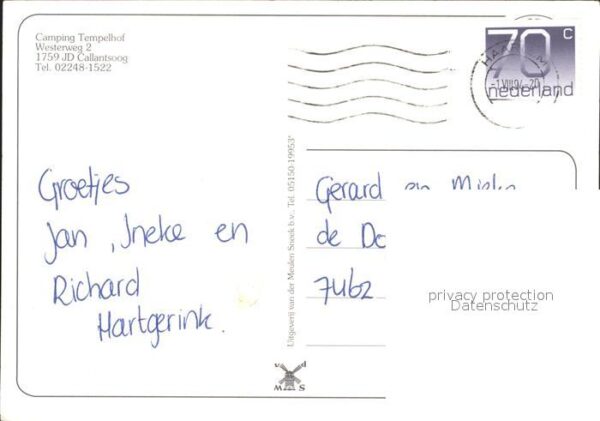 Camping Tempelhof
Westerweg 2
1759 JD Callantsoog
Tel. 02248-1522
70 c
nederland
Groetjes
Jan, Ineke en
Richard
Hartgerink.
Uitgeverij van der Meulen Sneek b.v., Tel. 05150-19953*
Gerard en
de
privacy protection
Datenschutz
v d
M S